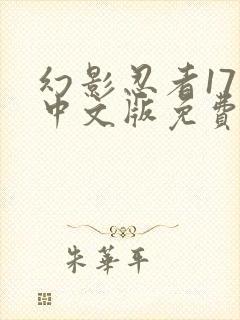 幻影忍者17
中文版免費
朱華平